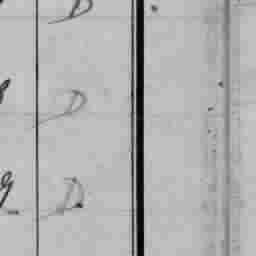 D
D
D